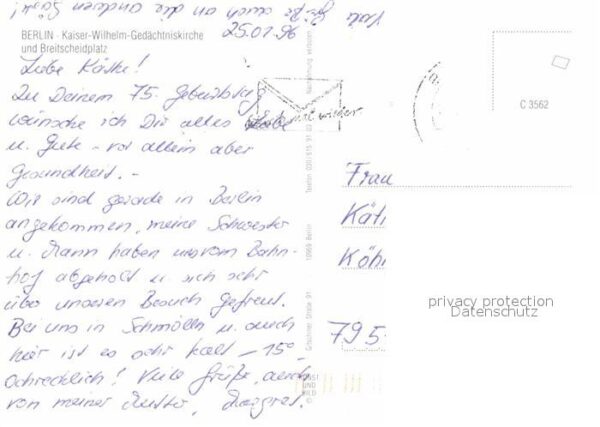 Viele Grüße auch an die anderen Gäste!
BERLIN · Kaiser-Wilhelm-Gedächtniskirche
und Breitscheidplatz
25.01.96
Liebe Käthe!
Zu Deinem 75. Geburtstag
wünsche ich Dir alles Liebe
u. Gute - vor allem aber
Gesundheit. -
Wir sind gerade in Berlin
angekommen, meine Schwester
u. Mann haben uns vom Bahn-
hof abgeholt u. sich sehr
über unseren Besuch gefreut.
Bei uns in Schmölln u. auch
hier ist es sehr kalt - 15°
schrecklich! Viele Grüße, auch
von meiner Mutter, Margret.
mal wieder
C 3562
Frau
Kät
Köh
795
10969 Berlin
Telefon (030) 615 91 02
KUNST
UND
BILD
privacy protection
Datenschutz